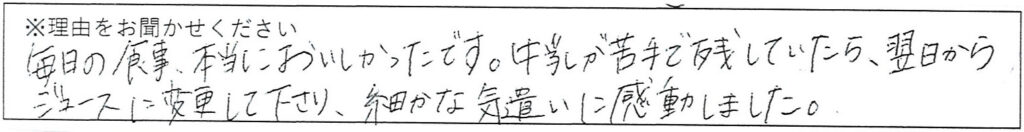 ※理由をお聞かせください
毎日の食事、本当においしかったです。牛乳が苦手で残していたら、翌日から
ジュースに変更して下さり、細かな気遣いに感動しました。